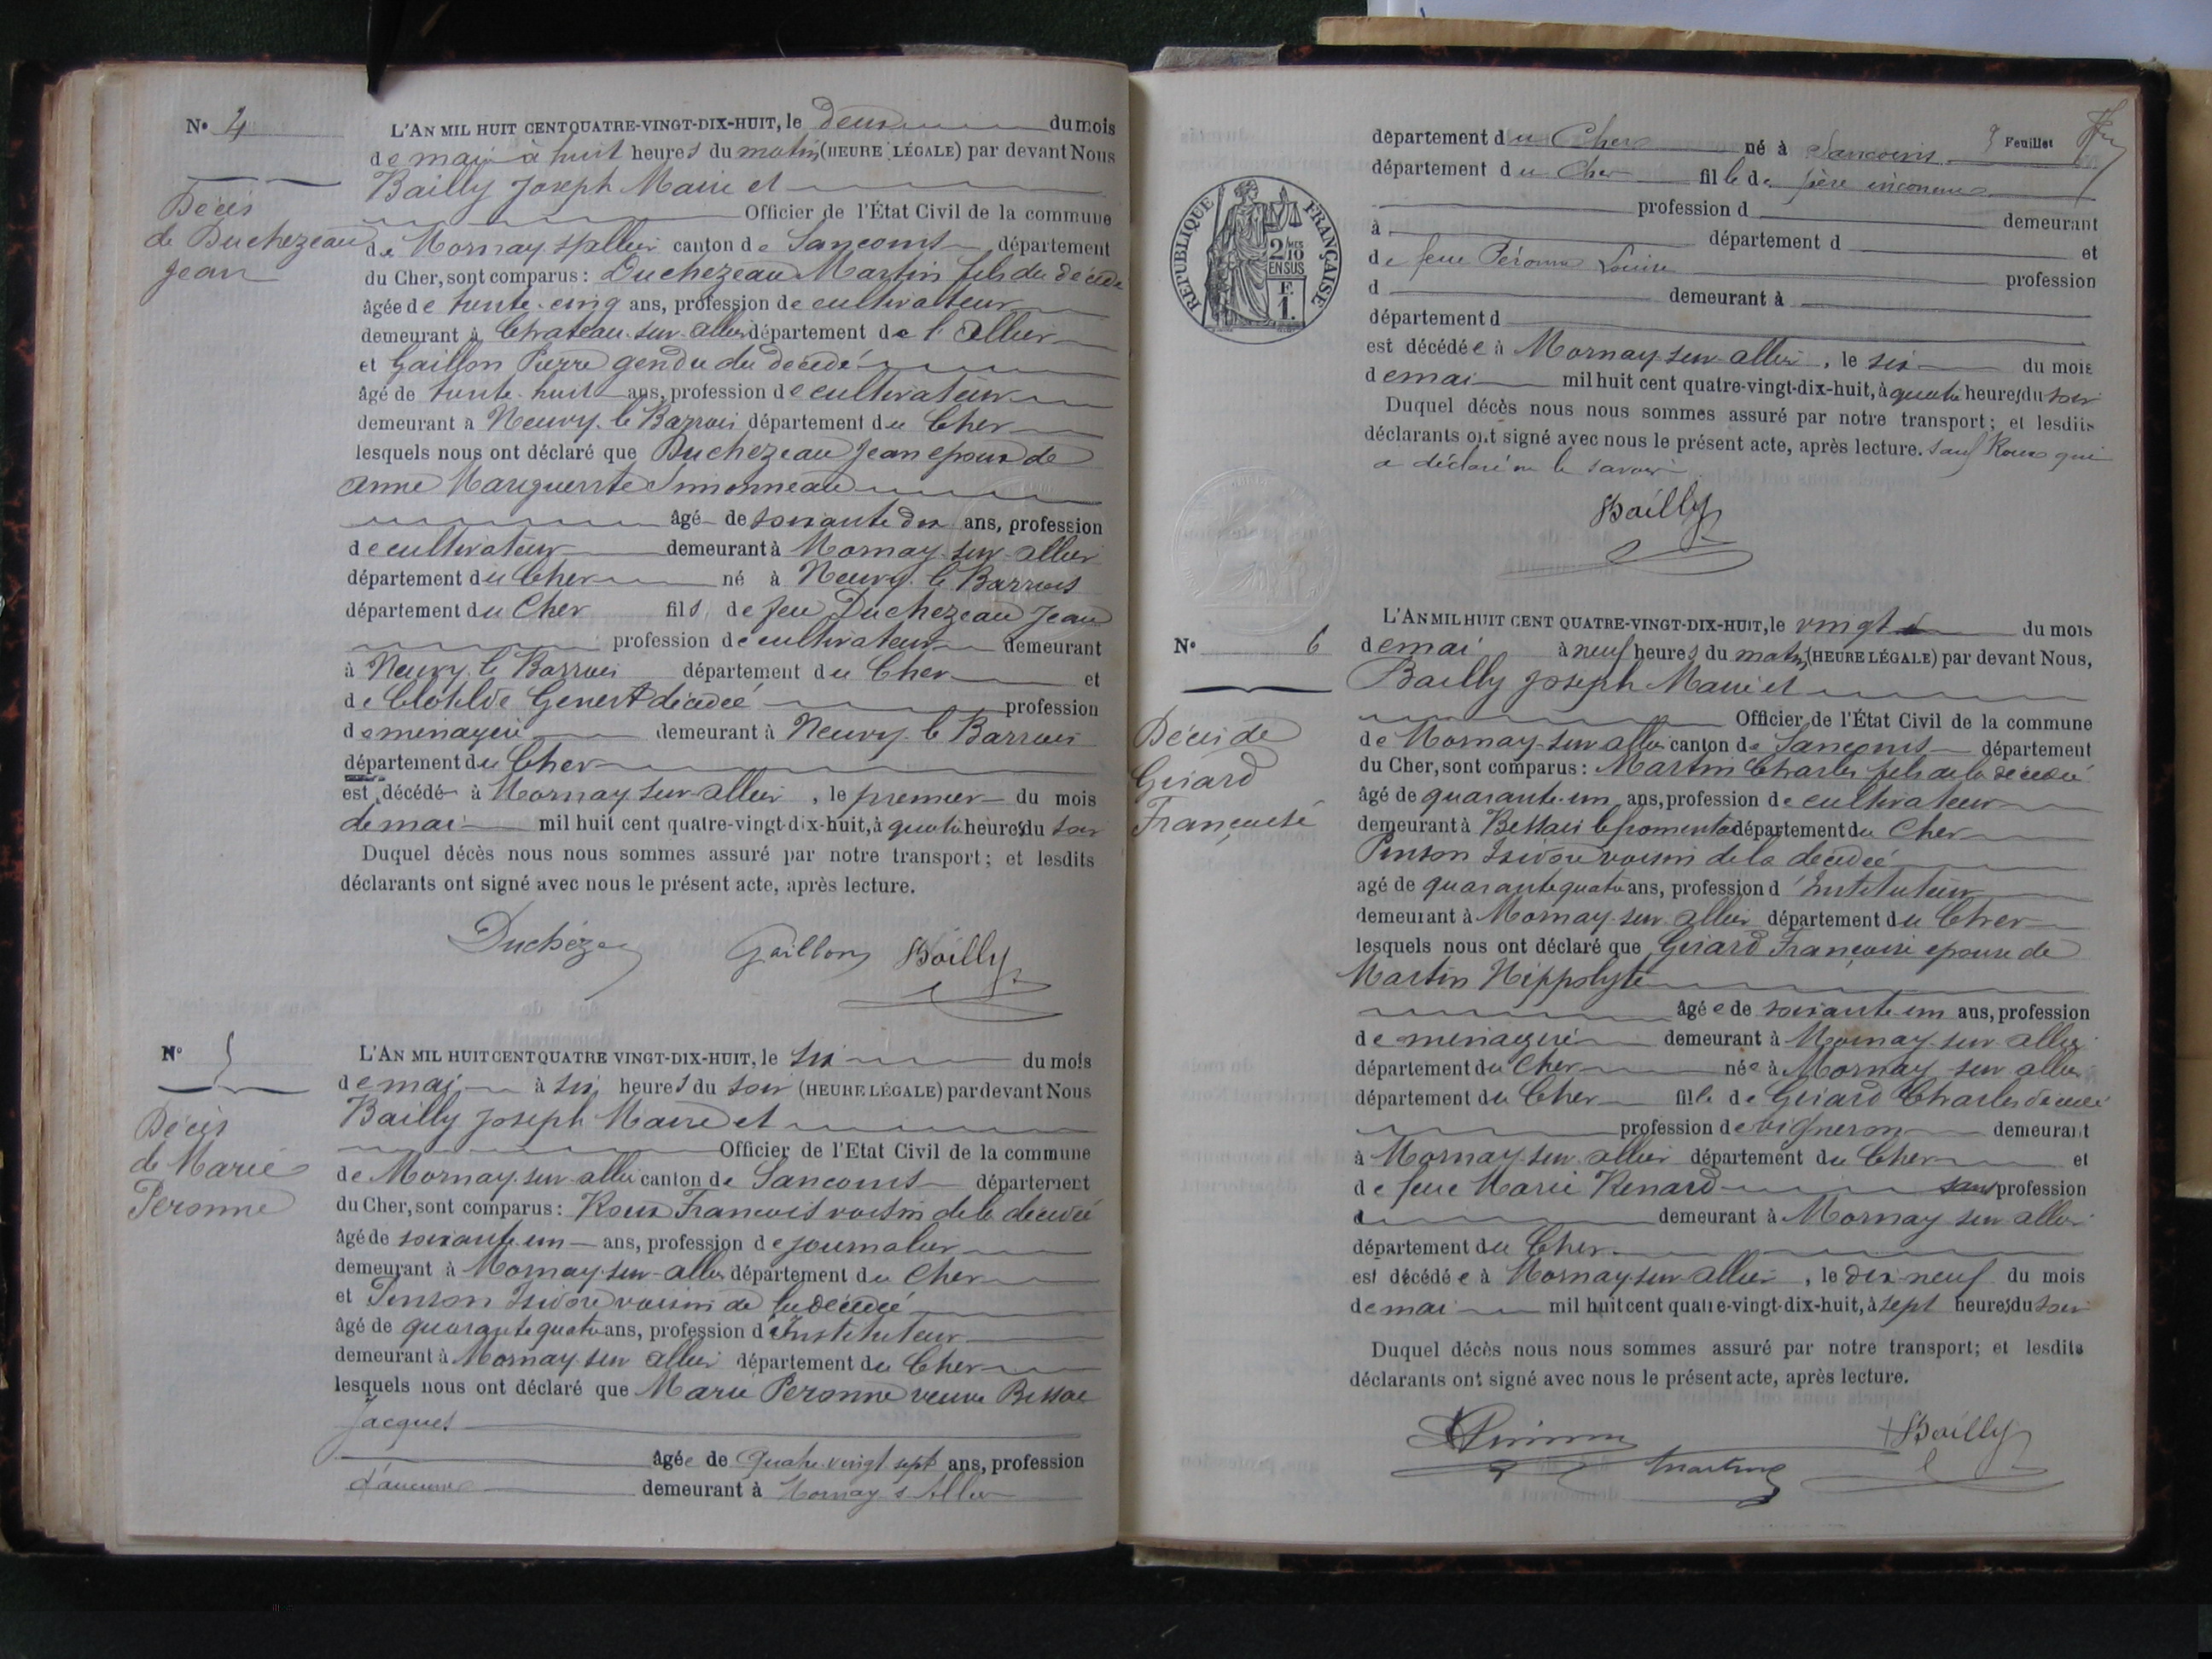 N° 4
Décès
de Duchezeau
Jean
L'AN MIL HUIT CENT QUATRE-VINGT-DIX-HUIT, le deux du mois
de mai à huit heures du matin (HEURE LÉGALE) par devant Nous
Bailly Joseph Maire et
Officier de l'État Civil de la commune
de Mornay s/allier canton de Sancoins département
du Cher, sont comparus: Duchezeau Martin fils du décédé
âgée de trente-cinq ans, profession de cultivateur
demeurant à Chateau-sur-allier département de l'Allier
et Gaillon Pierre gendre du décédé
âgé de trente-huit ans, profession de cultivateur
demeurant à Neuvy-le Barrois département du Cher
lesquels nous ont déclaré que Duchezeau Jean époux de
Anne Marguerite Simonneau
âgé de soixante dix ans, profession
de cultivateur demeurant à Mornay-sur-allier
département du Cher né à Neuvy-le Barrois
département du Cher fils de feu Duchezeau Jean
profession de cultivateur demeurant
à Neuvy-le Barrois département du Cher et
de Clotilde Genest décédée profession
de menagère demeurant à Neuvy-le Barrois
département du Cher
est décédé à Mornay sur-allier, le premier du mois
de mai mil huit cent quatre-vingt-dix-huit, à quatre heures du soir
Duquel décès nous nous sommes assuré par notre transport; et lesdits
déclarants ont signé avec nous le présent acte, après lecture.
Duchézeau Gaillon Bailly
N° 5
Décès
de Marie
Peronne
L'AN MIL HUIT CENT QUATRE VINGT-DIX-HUIT, le six du mois
de mai à six heures du soir (HEURE LÉGALE) par devant Nous
Bailly Joseph Maire et
Officier de l'Etat Civil de la commune
de Mornay-sur-allier canton de Sancoins département
du Cher, sont comparus: Roux Francois voisin de la décédée
âgé de soixante-un ans, profession de journalier
demeurant à Mornay-sur-allier département du Cher
et Pinson Isidore voisin de la décédée
âgé de quarante quatre ans, profession d'Instituteur
demeurant à Mornay-sur allier département du Cher
lesquels nous ont déclaré que Marie Peronne veuve
Jacques
âgée de Quatre-vingt sept ans, profession
d'aucune demeurant à Mornay s Allier
Feuillet
département du Cher né à Sancoins
département du Cher fille de père inconnu
profession d demeurant
à département d et
de feue Péronne Louise profession
d demeurant à
département d
est décédée à Mornay-sur-allier, le six du mois
de mai mil huit cent quatre-vingt-dix-huit, à quatre heures du soir
Duquel décès nous nous sommes assuré par notre transport; et lesdits
déclarants ont signé avec nous le présent acte, après lecture. sauf Roux qui
a déclaré ne le savoir
Bailly
RÉPUBLIQUE FRANÇAISE
2/10
MES
EN SUS
F.
1.
N° 6
Décès de
Girard
Françoise
L'AN MIL HUIT CENT QUATRE-VINGT-DIX-HUIT, le vingt du mois
de mai à neuf heures du matin (HEURE LÉGALE) par devant Nous,
Bailly Joseph Maire et
Officier de l'État Civil de la commune
de Mornay-sur allier canton de Sancoins département
du Cher, sont comparus: Martin Charles fils de la décédée
âgé de quarante-un ans, profession de cultivateur
demeurant à Bessais le fromental département du Cher
Pinson Isidore voisin de la décédée
agé de quarante quatre ans, profession d'Instituteur
demeurant à Mornay-sur-allier département du Cher
lesquels nous ont déclaré que Girard Françoise epouse de
Martin Hippolyte
âgée de soixante-un ans, profession
de menagère demeurant à Mornay-sur-allier
département du Cher née à Mornay-sur allier
département du Cher fille de Girard Charles décédé
profession de vigneron demeurant
à Mornay-sur allier département du Cher et
de feue Marie Renard sans profession
d demeurant à Mornay sur allier
département du Cher
est décédée à Mornay-sur-allier, le dix-neuf du mois
de mai mil huit cent quatre-vingt-dix-huit, à sept heures du soir
Duquel décès nous nous sommes assuré par notre transport; et lesdits
déclarants ont signé avec nous le présent acte, après lecture.
Pinson Martin Bailly